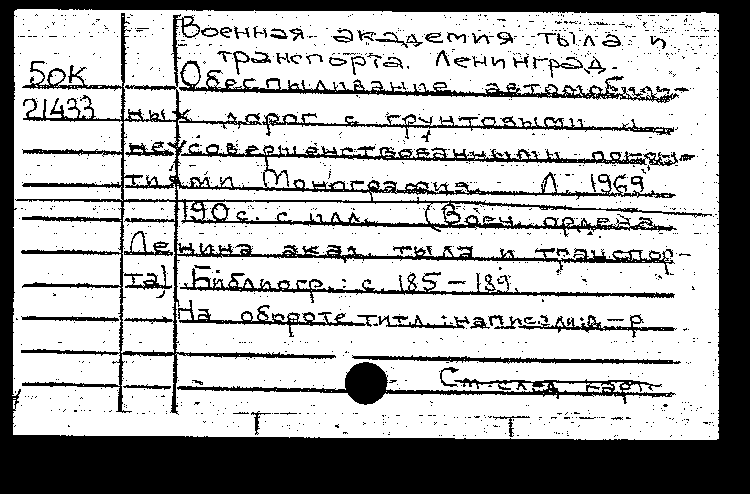 Военная академия тыла и
транспорта. Ленинград.
БОК Обеспыливание автомобиль-
21433 ных дорог с грунтовыми и
неусовершенствованными покры-
тиями. Монография. Л. 1969.
190с. с илл. (Воен. ордена
Ленина акад. тыла и транспор-
та) Библиогр.: с. 185-189.
На обороте титл.: написали: д-р
См. след. карт.